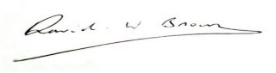 David W Brown